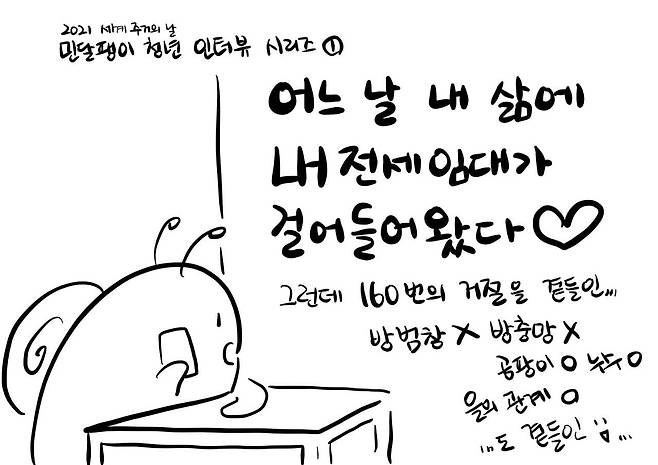 2021 세계 주거의 날
민달팽이 청년 인터뷰 시리즈 ①
어느 날 내 삶에
LH전세임대가
걸어들어왔다♡
그런데 160번의 거절을 곁들인,,,
방범창 X 방충망 X
곰팡이 O 누수 O
을의 관계 O
,,,도 곁들인 ;;,,,